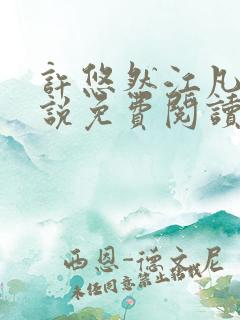 許悠然江凡
說免費閱讀
西恩-德文尼
未经同意禁止转载